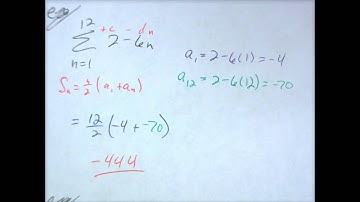 eg
12 +c -dn
Σ 2 - 6n
n=1
a₁ = 2-6(1) = -4
a₁₂ = 2-6(12) = -70
Sₙ = n/2 (a₁ + aₙ)
= 12/2 (-4 + -70)
-444